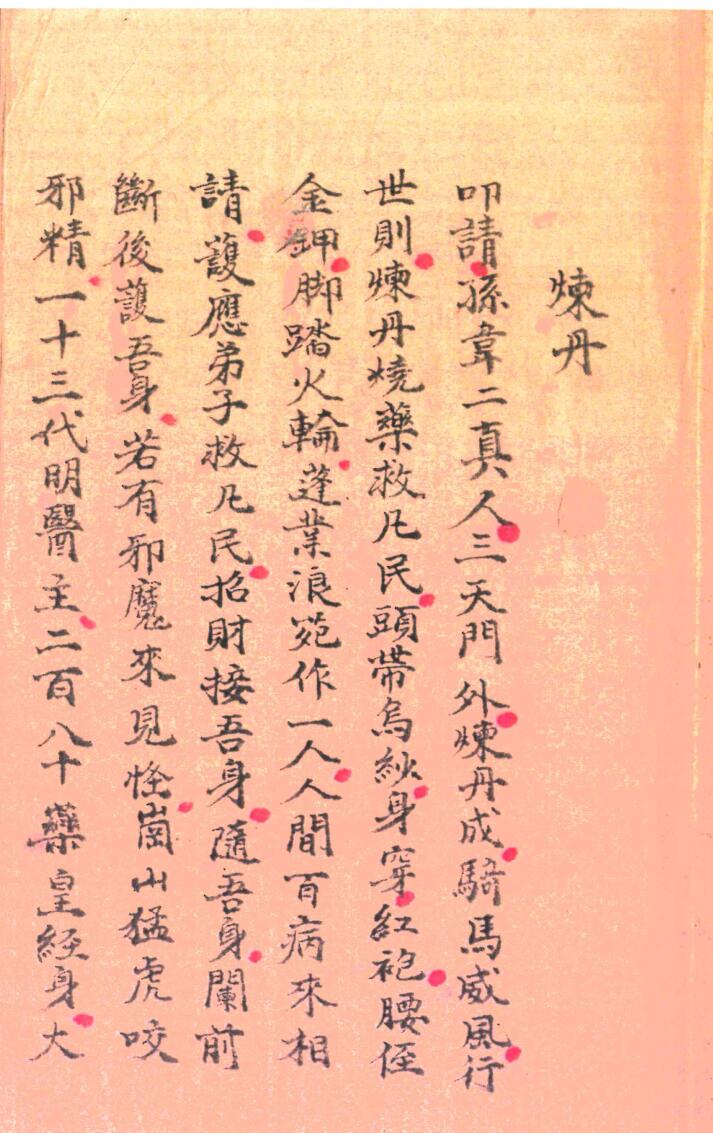 煉丹
叩請孫韋二真人三天門外煉丹成騎馬威風行
世則煉丹燒藥救凡民頭帶烏紗身穿紅袍腰侄
金鉀脚踏火輪蓬業浪苑作一人人間百病來相
請護應弟子救凡民招財接吾身隨吾身闌前
斷後護吾身若有邪魔來見怪崗山猛虎咬
邪精一十三代明醫主二百八十藥皇經身大